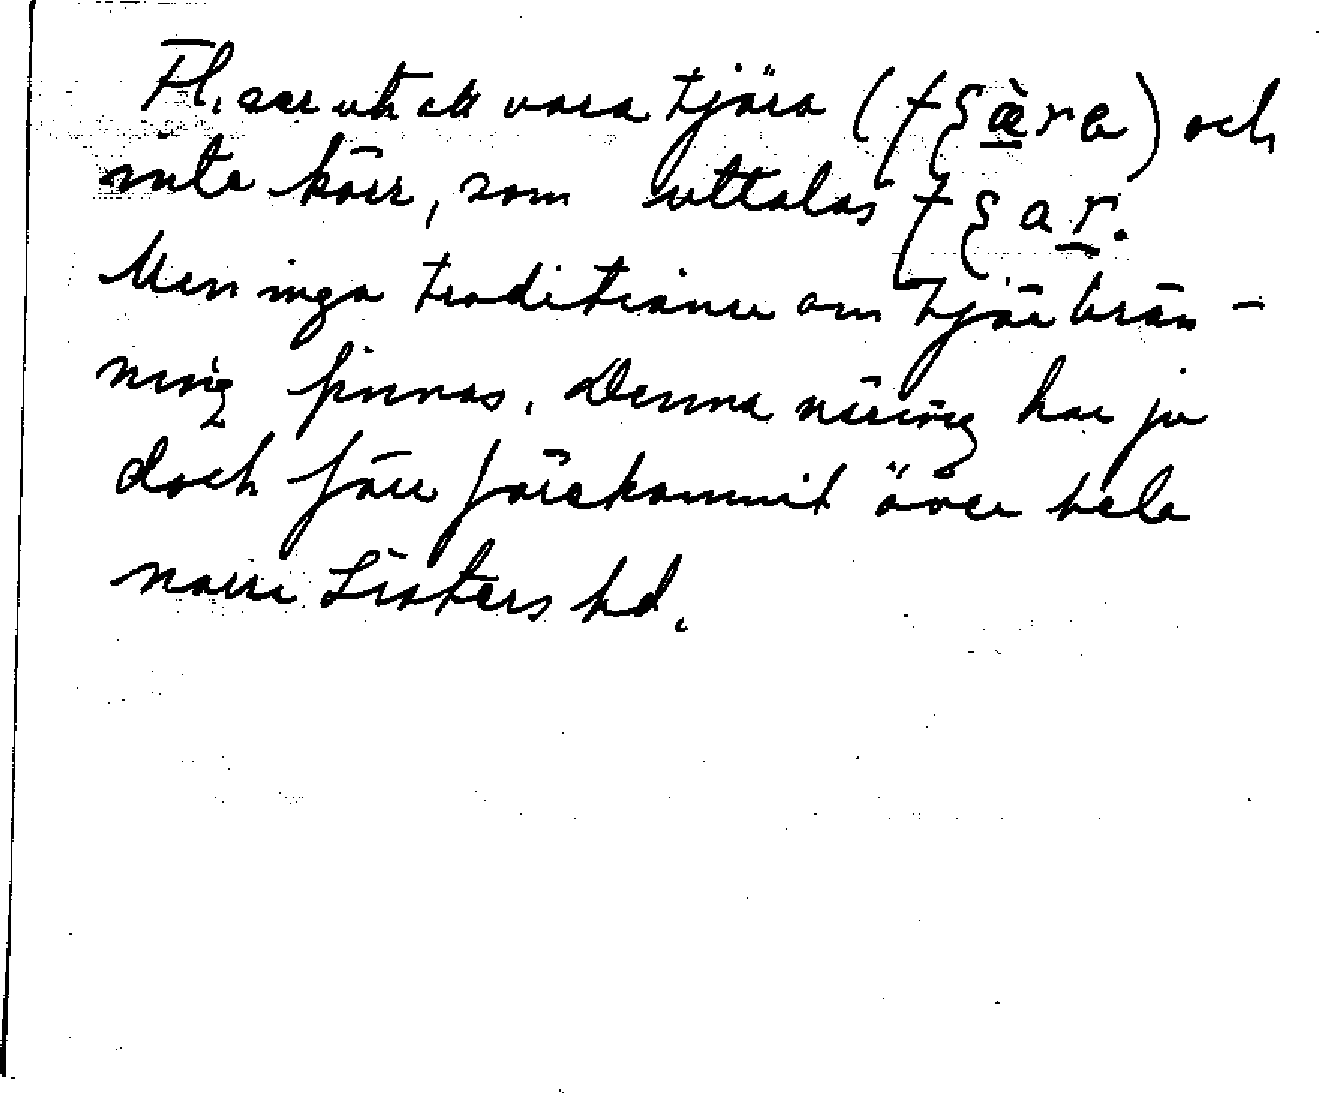 Fl. ser ut att vara tjära (tʃæ̀ra) och
inte kärr, som uttalas tʃar.
Men inga traditioner om tjärbrän-
ning finnas. Denna näring har ju
dock förr förekommit över hela
norra Listers hd.